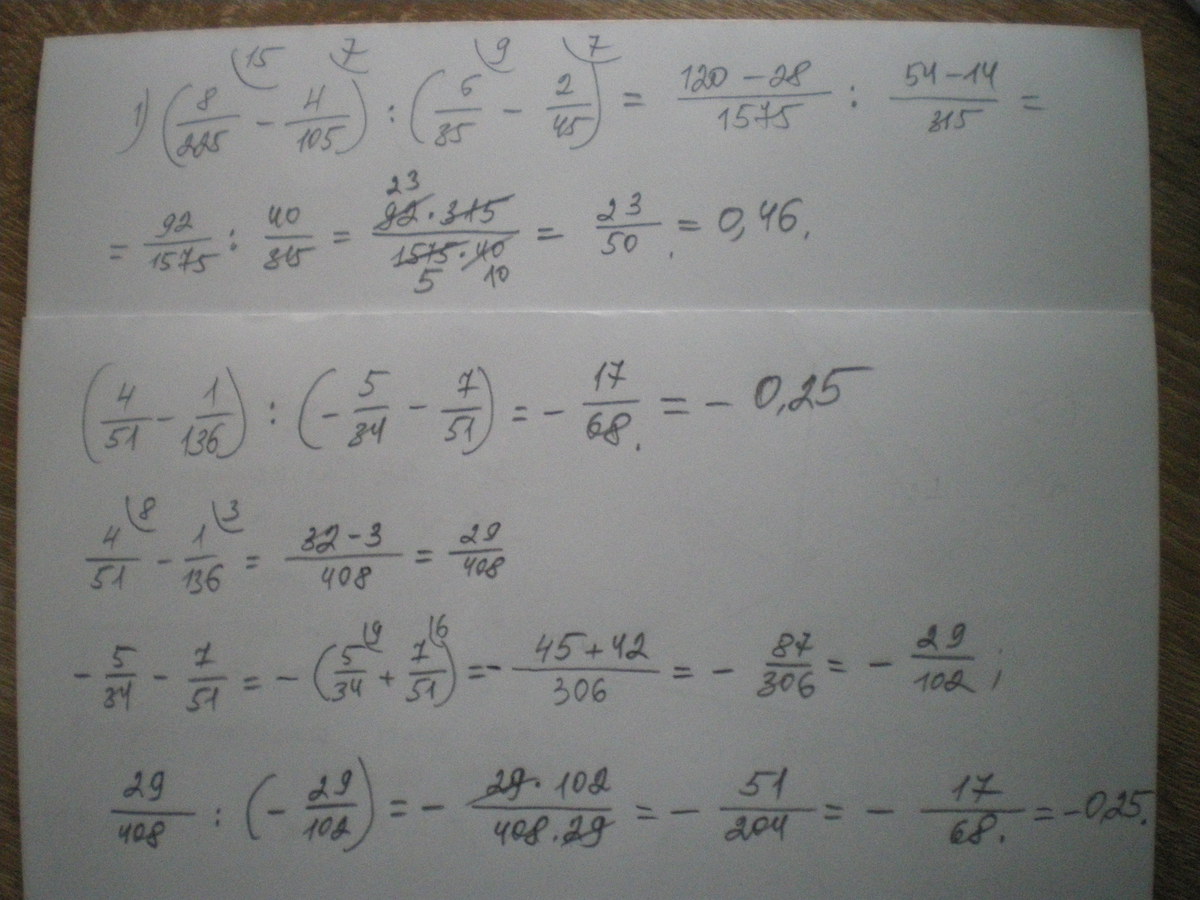 1) (8/225 \15 - 4/105 \7) : (6/35 \9 - 2/45 \7) = (120 - 28)/1575 : (54 - 14)/315 =
= 92/1575 : 40/315 = (92 23 · 315)/(1575 5 · 40 10) = 23/50 = 0,46.
(4/51 - 1/136) : (- 5/34 - 7/51) = - 17/68 = - 0,25
4/51 \8 - 1/136 \3 = (32 - 3)/408 = 29/408
- 5/34 - 7/51 = - (5/34 \9 + 7/51 \6) = - (45 + 42)/306 = - 87/306 = - 29/102 ;
29/408 : (- 29/102) = - (29 · 102)/(408 · 29) = - 51/204 = - 17/68 = -0,25.